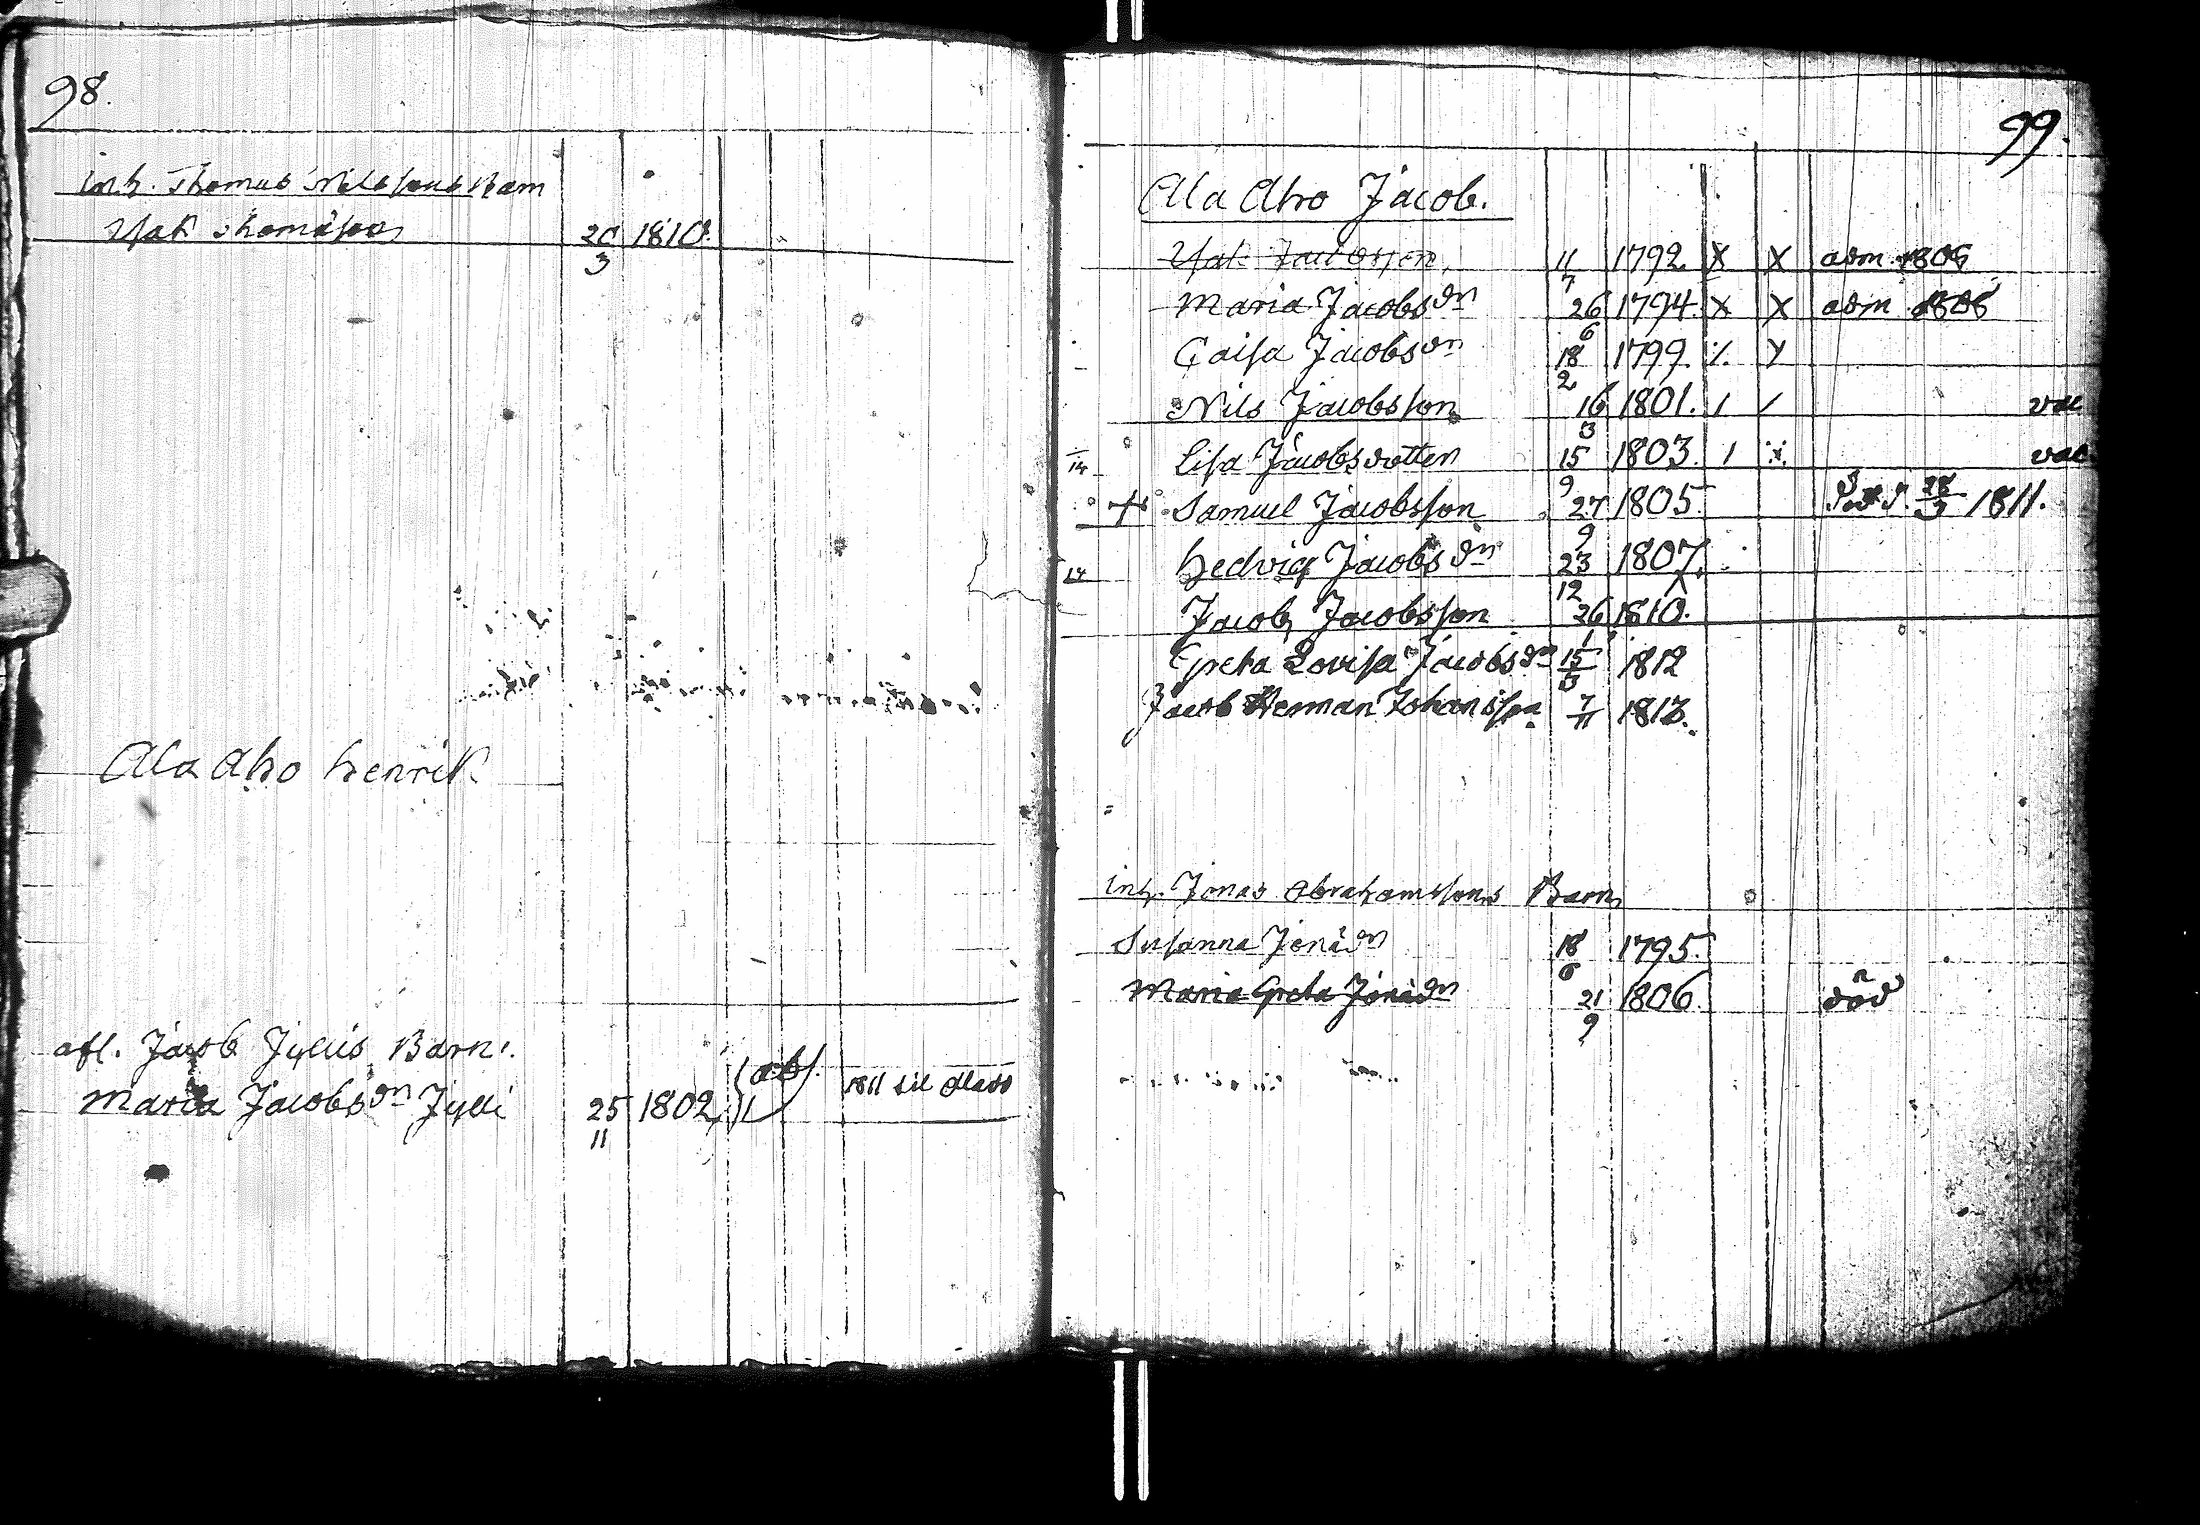 98.
inh. Thomas Nilssons Barn
Isak Thomasson 20/3 1810.
Ala Aho Henrik
afl. Jacob Jyllis Barn.
Maria Jacobsdn Jylli 25/11 1802 abs. 1811 til
99.
Ala Aho Jacob.
Isak Jacobsson, 11/7 1792. X X adm. 1809
Maria Jacobsdn 26/6 1794. X X adm. 1808
Caisa Jacobsdn 18/2 1799.
Nils Jacobsson 16/3 1801. / / vac
14 Lisa Jacobsdotter 15/9 1803. / vac
+ Samuel Jacobsson 27/9 1805. 1811.
14 Hedvig Jacobsdn 23/12 1807.
Jacob Jacobsson 26/1 1810.
Greta Lovisa Jacobsdn 15/3 1812
Jacob Herman Johansson 7/11 1813.
inh. Jonas Abrahamssons Barn
Susanna Jonædn 18/6 1795.
Maria Greta Jonædn 21/9 1806. död